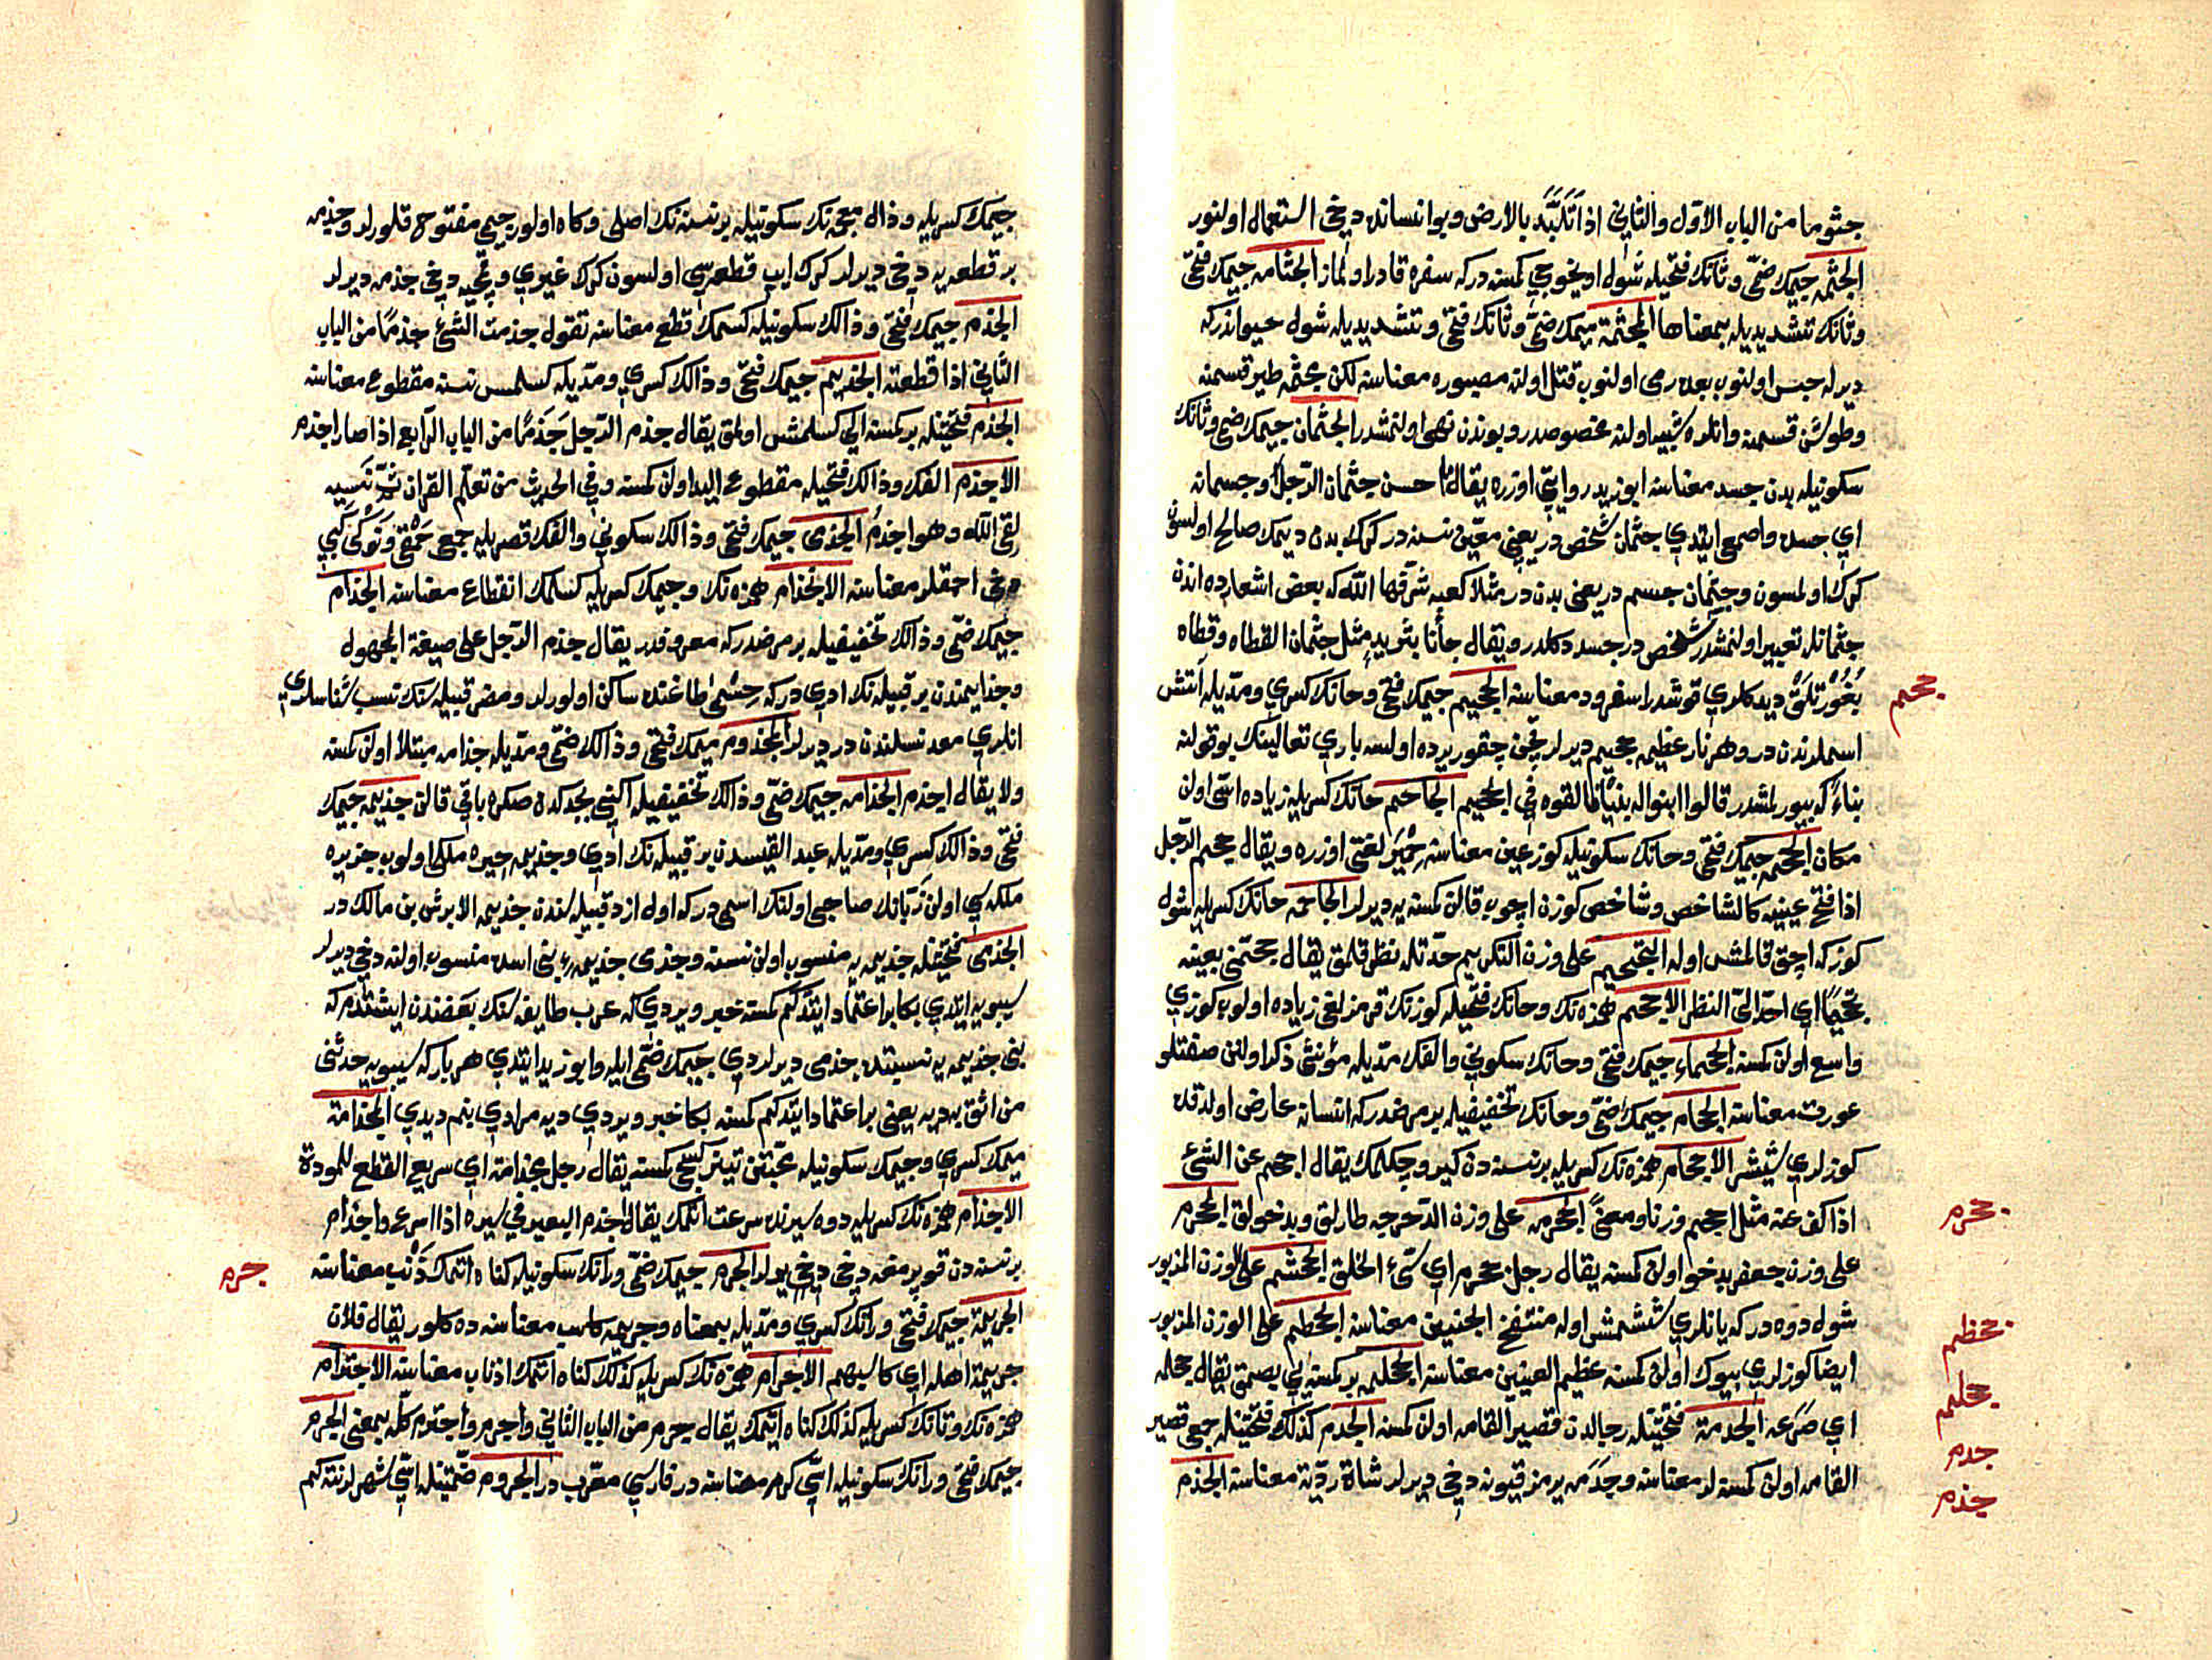 جثوما من الباب الاول والثاني اذا تلبد بالارض وبو انسانده دخي استعمال اولنور
الجثمه جيمك ضمى وثانك فتحيله شول اويخوجي كمسه دركه سفره قادر اولماز الجثامه جيمك فتحى
وثانك تشديديله بمعناها المجثمة ميمك ضمى وثانك فتحى وتشديديله شول حيواندركه
ديرله حبس اولنوب بعده رمى اولنوب قتل اولنه مصبوره معناسنه لكن مجثمه طير قسمنه
وطوشن قسمنه وانلره شبيه اولنه مخصوصدر وبوندن نهى اولنمشدر الجثمان جيمك ضمى وثانك
سكونيله بدن جسد معناسنه ابوزيد روايتى اوزره يقال ما احسن جثمان الرجل وجسمانه
اي جسده واصمعى ايتدي جثمان شخص در يعني معين نسنه در كرك بدن ديمك صالح اولسون
كرك اولمسون وجثمان جسم در يعنى بدن در مثلا كعبه شرفها الله كه بعض اشعارده اندن
جثمانله تعبير اولنمشدر شخص در جسد دكلدر ويقال جأنا بثريد مثل جثمان القطاه وقطاه
ديدكلري قوشدر اسفرود معناسنه الجحيم جيمك فتحى وحانك كسري ومديله آتش
اسملرندن در وهر نار عظيمه جحيم ديرلر نچن چقور يرده اولسه باري تعالينك بو قولنه
بناء كه بيورلمشدر قالوا ابنوا له بنيانا فالقوه في الجحيم الجاحم حانك كسريله زياده اسى اولن
مكان الجحمه جيمك فتحى وحانك سكونيله كوز عين معناسنه حمير لغتى اوزره ويقال جحم الرجل
اذا فتح عينيه كالشاخص وشاخص كوزن اچوب قالن كمسه يه ديرلر الجاحمه حانك كسريله شول
كوزكه اچق قالمش اوله التجحيم على وزن التكريم حدتله نظر قلمق يقال جحمنى بعينه
تجحيما اي احد الى النظر الاجحم همزه نك وحانك فتحيله كوزنك قرمزلغى زياده اولوب كوزي
واسع اولن كمسه الجحماء جيمك فتحى وحانك سكوني والفك مديله مؤنثى ذكر اولنن صفتلو
عورت معناسنه الجحام جيمك ضمى وحانك تخفيفيله بر مرضدركه انسانه عارض اولدقده
كوزلري شيشر الاجحام همزه نك كسريله بر نسنه دن كيرو چكلمك يقال اجحم عن الشئ
اذا كف عنه مثل احجم وزنا ومعنى الجحرمه على وزن الدحرجه طارلق وبدخولق الجحرم
على وزن جعفر بدخو اولن كمسه يقال رجل جحرم اي سئ الخلق الجحشم على الوزن المزبور
شول دوه دركه يانلري ششمش اوله منتفخ الجنبين معناسنه الجحظم على الوزن المزبور
ايضا كوزلري بيوك اولن كمسه عظيم العينين معناسنه الجحلمه بر كمسه يي بصمق يقال جحلمه
اي صرعه الجدمة فتحتيله رجالدن قصير القامه اولن كمسه الجدم كذلك فتحتيله جمعى قصير
القامه اولن كمسه لر معناسنه وجدمه يرمز قيونه دخي ديرلر شاة ردية معناسنه الجذم
جحم
جحرم
جحظم
جحلم
جدم
جذم
جيمك كسريله وذال معجمه نك سكونيله بر نسنه نك اصلى وكاه اولور جيمى مفتوح قلورلر وجذمه
بر قطعه يه دخي ديرلر كرك ايپ قطعه سي اولسون كرك غيري وقمچيه دخي جذمه ديرلر
الجذم جيمك فتحى وذالك سكونيله كسمك قطع معناسنه تقول جذمت الشئ جذما من الباب
الثاني اذا قطعته الجذيم جيمك فتحى وذالك كسري ومديله كسلمش نسنه مقطوع معناسنه
الجذم فتحتيله بر كمسه الي كسلمش اولمق يقال جذم الرجل جذما من الباب الرابع اذا صار اجذم
الاجذم الفك وذالك فتحيله مقطوع اليد اولن كمسه وفي الحديث من تعلم القران ثم نسيه
لقى الله وهو اجذم الجذمى جيمك فتحى وذالك سكوني والفك قصريله جمعى حمقى ونوكى كبي
دخى احمقلر معناسنه الانجذام همزه نك وجيمك كسريله كسلمك انقطاع معناسنه الجذام
جيمك ضمى وذالك تخفيفيله بر مرضدركه معروفدر يقال جذم الرجل على صيغة المجهول
وجذام يمندن بر قبيله نك ادي دركه حسمى طاغنده ساكن اولورلر ومضر قبيله سنك نسب شناسلري
انلري معد نسلندن در ديرلر المجذوم ميمك فتحى وذالك ضمى ومديله جذامه مبتلا اولن كمسه
ولا يقال اجذم الجذامه جيمك ضمى وذالك تخفيفيله اكني بجدكده صكره باقى قالن جذيمه جيمك
فتحى وذالك كسري ومديله عبد القيسدن بر قبيله نك ادي وجذيمه حيره ملكى اولوب جزيره
ملكه سي اولن زبانك صاحبى اولنك اسمى دركه اول ازد قبيله سندن جذيمه الابرش بن مالك در
الجذمى فتحتيله جذيمه يه منسوب اولن نسنه وجذمى جذيمه بنى اسده منسوب اولنه دخي ديرلر
سيبويه ايتدي بكا براعتماد ايتدكم كمسه خبر ويردي كه عرب طايفه سنك بعضندن ايشتدم كه
بنى جذيمه يه نسبتده جذمى ديرلردي جيمك ضمى ايله وابوزيد ايتدي هر باركه سيبويه حدثنى
من اثق به ديه يعنى براعتماد ايتدكم كمسه بكا خبر ويردي ديه مرادي بنم ديدي المجذامة
ميمك كسري وجيمك سكونيله محبتن تيز كسجى كمسه يقال رجل مجذامة اي سريع القطع للمودة
الاجذام همزه نك كسريله دوه سيرنده سرعت اتمك يقال اجذم البعير في سيره اذا اسرع واجذام
بر نسنه دن قوپرمغه دخي ديرلر الجرم جيمك ضمى ورانك سكونيله كناه اتمك ذنب معناسنه
الجريمة جيمك فتحى ورانك كسري ومديله بمعناه وجريمه كاسب معناسنه ده كلور يقال فلان
جريمة اهله اي كاسبهم الاجرام همزه نك كسريله كذلك كناه اتمك اذناب معناسنه الاجترام
همزه نك وتانك كسريله كذلك كناه ايتمك يقال جرم من الباب الثاني واجرم واجترم كله بمعنى الجرم
جيمك فتحى ورانك سكونيله اسى كرم معناسنه در فارسي معرب در الجروم ضمتيله اسى شهرلرنته كم
جرم